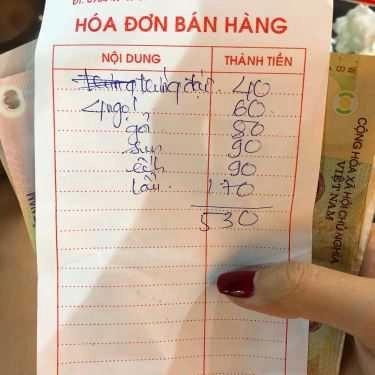 HÓA ĐƠN BÁN HÀNG
NỘI DUNG THÀNH TIỀN
trứng đặc 40
4 ngọt 60
gỏi 80
sụn 90
ếch 90
lẩu 170
530
CỘNG HÒA XÃ HỘI CHỦ NGHĨA
VIỆT NAM